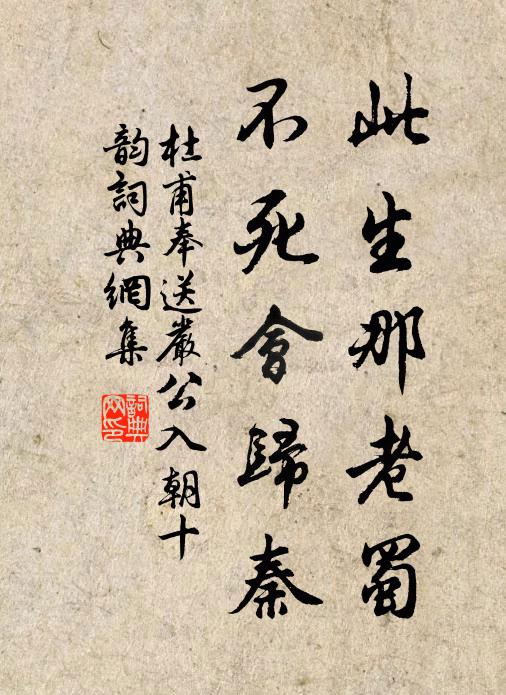 此生那老蜀
不死會歸秦
杜甫奉送嚴公入朝十
韵詞典網集
詞典
网印